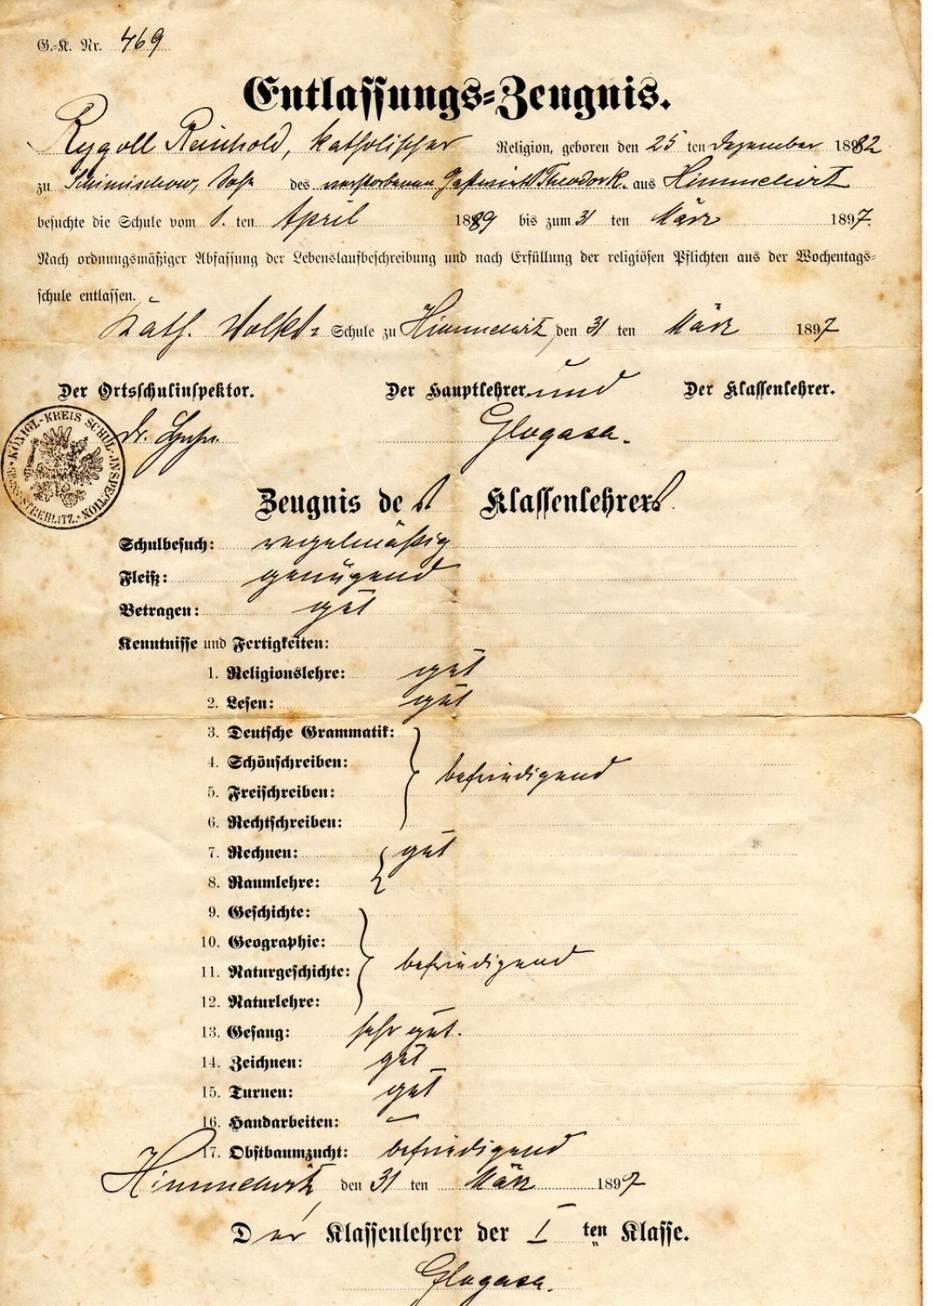 G.-K. Nr. 469
Entlassungs-Zeugnis.
Rygoll Reinhold, katholischer Religion, geboren den 25 ten Dezember 1882
zu Schimischow, Sohn des verstorbenen Gastwirts Theodor R. aus Himmelwitz
besuchte die Schule vom 1. ten April 1889 bis zum 31 ten März 1897.
Nach ordnungsmäßiger Abfassung der Lebenslaufbeschreibung und nach Erfüllung der religiösen Pflichten aus der Wochentags-
schule entlassen.
Kath. Volks- Schule zu Himmelwitz, den 31 ten März 1897
Der Ortsschulinspektor. Der Hauptlehrer und Der Klassenlehrer.
Dr. Glogasa.
KÖNIGL. KREIS SCHUL-INSPECTION GR. STREHLITZ.
Zeugnis des Klassenlehrers.
Schulbesuch: regelmäßig
Fleiß: genügend
Betragen: gut
Kenntnisse und Fertigkeiten:
1. Religionslehre: gut
2. Lesen: gut
3. Deutsche Grammatik:
4. Schönschreiben: befriedigend
5. Freischreiben:
6. Rechtschreiben:
7. Rechnen: gut
8. Raumlehre:
9. Geschichte:
10. Geographie:
11. Naturgeschichte: befriedigend
12. Naturlehre:
13. Gesang: sehr gut.
14. Zeichnen: gut
15. Turnen: gut
16. Handarbeiten: –
17. Obstbaumzucht: befriedigend
Himmelwitz, den 31 ten März 1897
Der Klassenlehrer der I ten Klasse.
Glogasa.